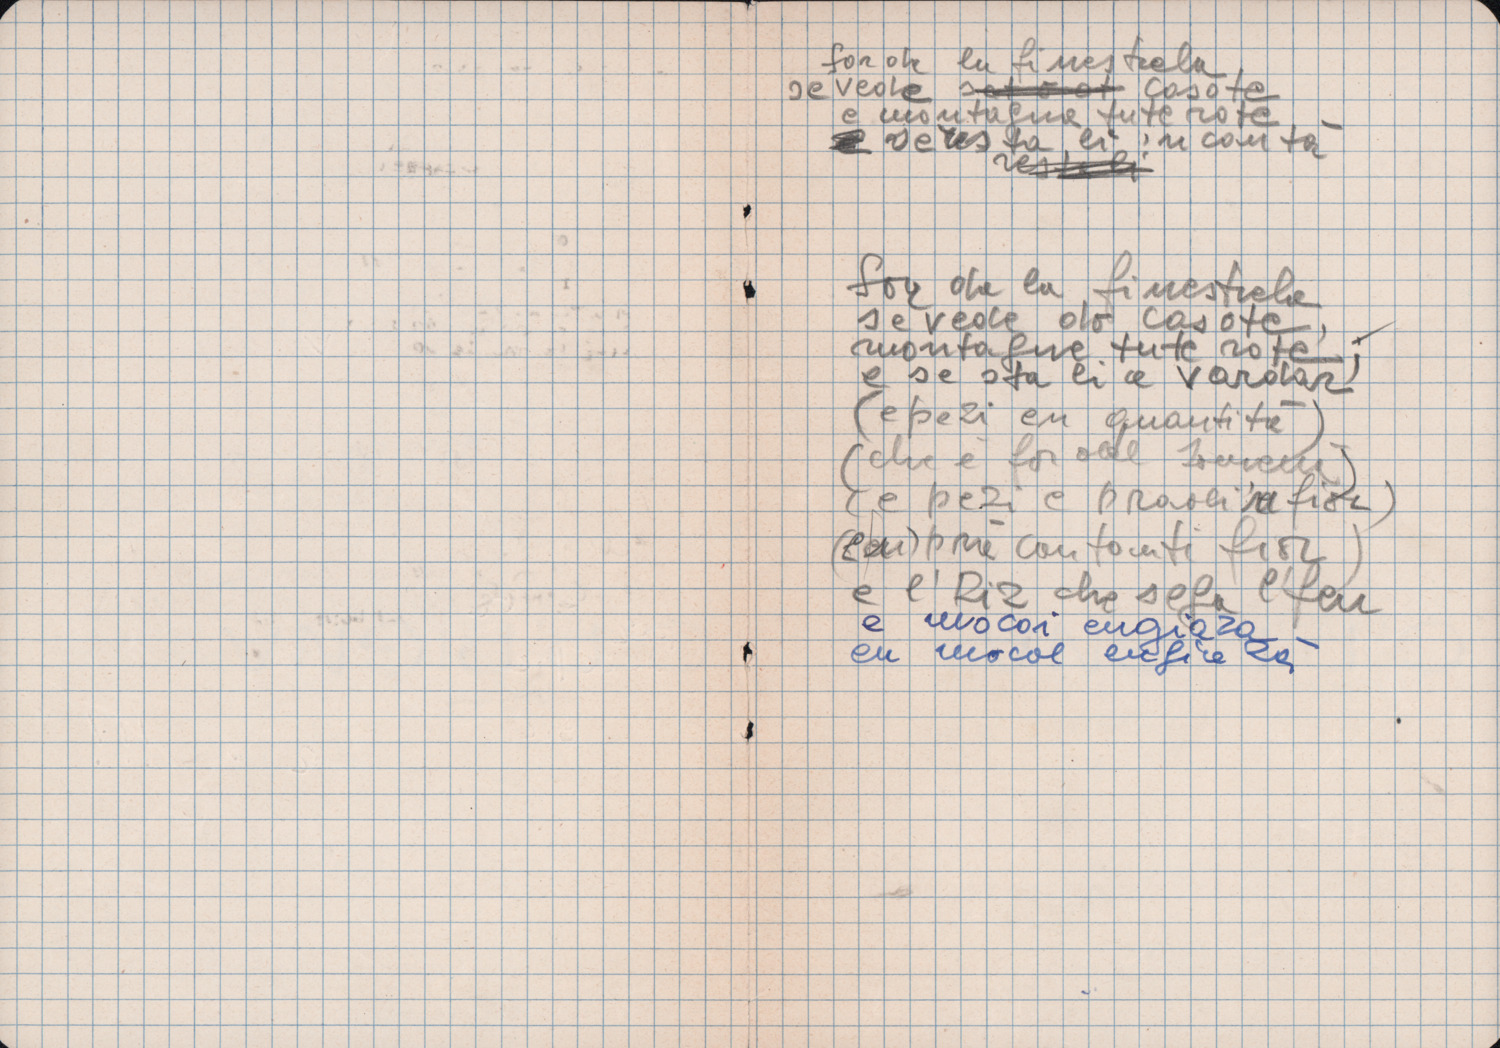 for da la finestrela
se vede casote
e montagne tute rote
e se resta li incantà
for da la finestrela
se vede do casote,
montagne tute rote;
e se sta li a vardar,
(e pezi en quantità)
(che è for del
(e pezi e pradi 'n fior)
prà contanti fior)
e l'Riz che sega l'fen
e mocoi engiaza
en mocol engiazà